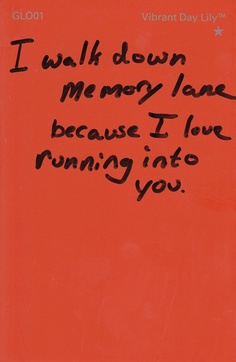 GLO01 Vibrant Day Lily™
I walk down
memory lane
because I love
running into
you.